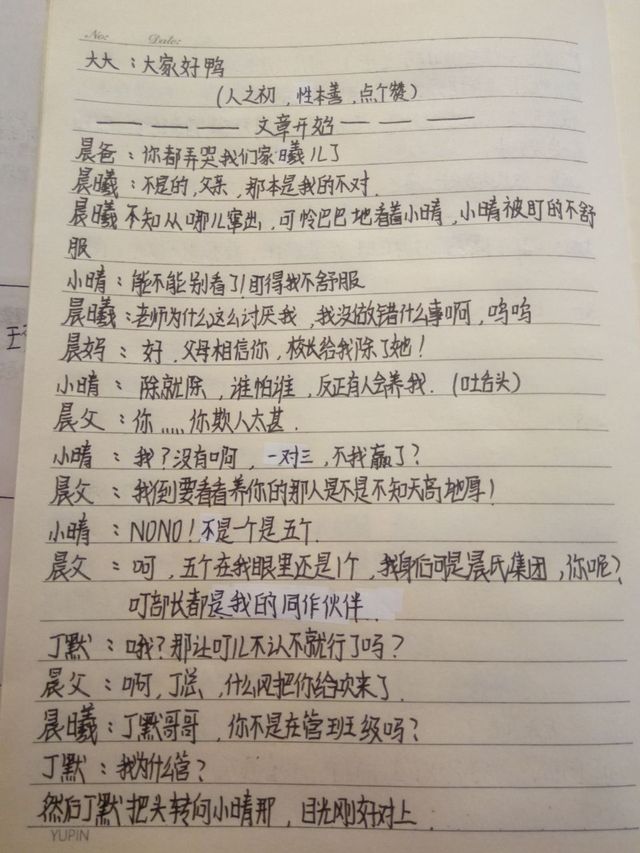 No: Date:
大大：大家好鸭
（人之初，性本善，点个赞）
— — — 文章开始 — — —
晨爸：你都弄哭我们家曦儿了
晨曦：不是的，父亲，那本是我的不对．
晨曦不知从哪儿窜出，可怜巴巴地看着小晴，小晴被盯的不舒
服
小晴：能不能别看了！盯得我不舒服
晨曦：老师为什么这么讨厌我，我没做错什么事啊，呜呜
晨妈：好，父母相信你，校长给我除了她！
小晴：除就除，谁怕谁，反正有人会养我．（吐舌头）
晨父：你，，，，，你欺人太甚．
小晴：我？没有啊，一对三，不我赢了？
晨父：我倒要看看养你的那人是不是不知天高地厚！
小晴：NONO！不是一个是五个．
晨父：呵，五个在我眼里还是1个，我身后可是晨氏集团，你呢？
叮部长都是我的同作伙伴．
丁默：哦？那让叮儿不认不就行了吗？
晨父：啊，丁总，什么风把你给吹来了．
晨曦：丁默哥哥，你不是在管班级吗？
丁默：我为什么管？
然后丁默把头转向小晴那，目光刚好对上．
YUPIN